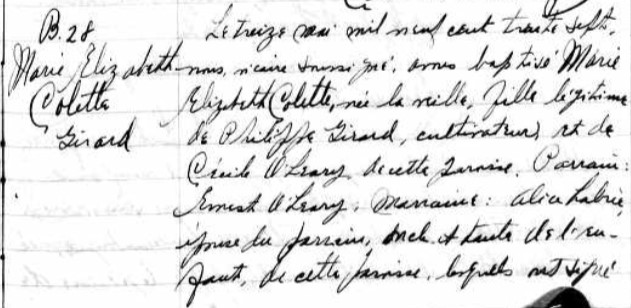 B. 28
Marie Elizabeth
Colette
Girard
Le treize mai mil neuf cent trente sept,
nous, vicaire soussigné, avons baptisé Marie
Elizabeth Colette, née la veille, fille légitime
de Philippe Girard, cultivateur, et de
Cécile O'Leary de cette paroisse. Parrain:
Ernest O'Leary, Marraine: Alice Labrie,
épouse du parrain, oncle et tante de l'en-
fant, de cette paroisse, lesquels ont signé